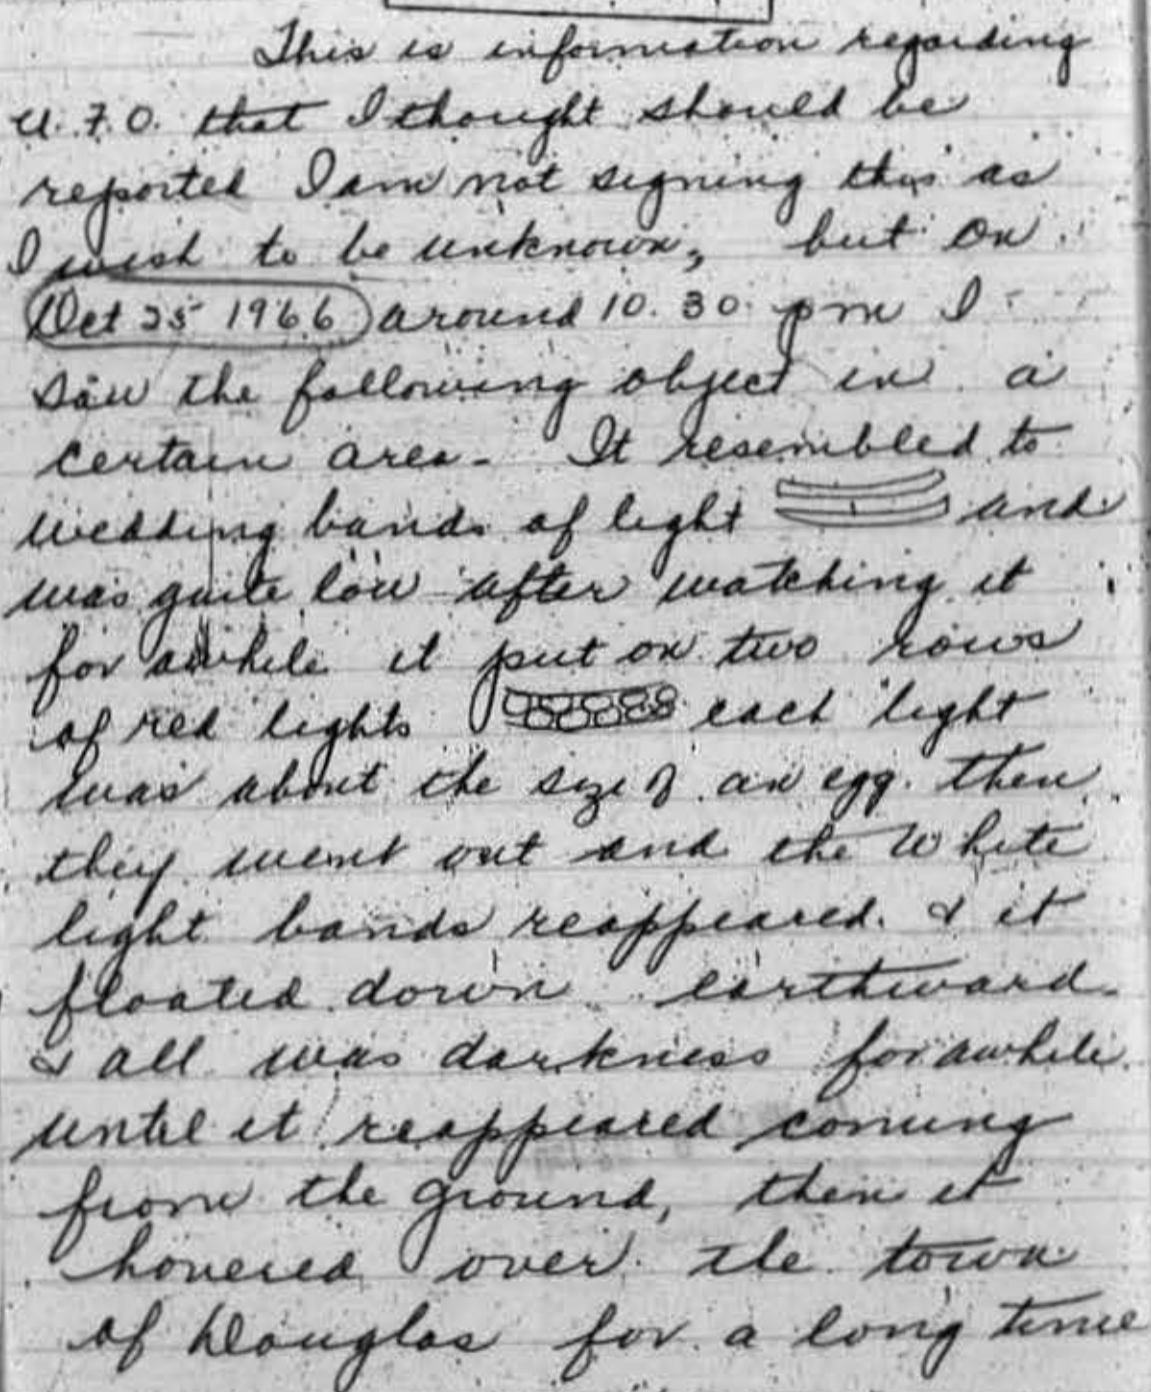 This is information regarding
U.F.O. that I thought should be
reported I am not signing this as
I wish to be unknown, but on
Oct 25 1966 around 10.30 pm I
saw the following object in a
certain area - It resembled to
wedding bands of light and
was quite low after watching it
for awhile it put on two rows
of red lights each light
was about the size of an egg. then
they went out and the White
light bands reappeared. & it
floated down earthward
& all was darkness for awhile.
until it reappeared coming
from the ground, then it
hovered over the town
of Douglas for a long time